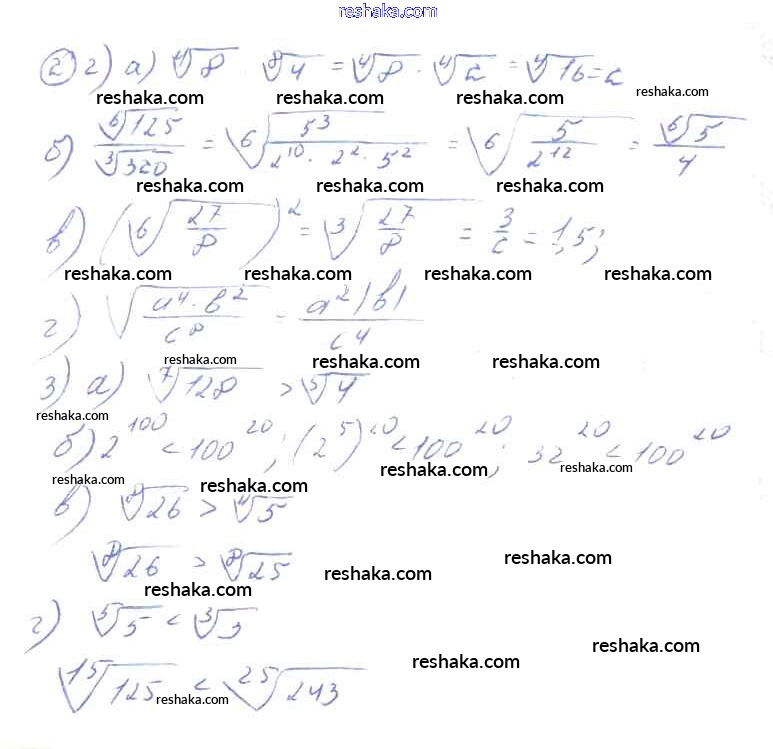 reshaka.com
② 2) а) ∜8 · ⁸√4 = ∜8 · ∜2 = ∜16 = 2
reshaka.com reshaka.com reshaka.com reshaka.com
б) ⁶√125 / ³√320 = ⁶√(5³ / (2¹⁰ · 2² · 5²)) = ⁶√(5 / 2¹²) = ⁶√5 / 4
reshaka.com reshaka.com reshaka.com
в) (⁶√(27/8))² = ³√(27/8) = 3/2 = 1,5;
reshaka.com reshaka.com reshaka.com reshaka.com
г) √(a⁴ · b² / c⁸) = a²|b| / c⁴
reshaka.com reshaka.com reshaka.com
3) а) ⁷√128 > ⁵√4
reshaka.com
б) 2¹⁰⁰ < 100²⁰; (2⁵)²⁰ < 100²⁰; 32²⁰ < 100²⁰
reshaka.com reshaka.com reshaka.com reshaka.com
в) ⁸√26 > ∜5
⁸√26 > ⁸√25
reshaka.com reshaka.com reshaka.com
г) ⁵√5 < ³√3
reshaka.com reshaka.com
¹⁵√125 < ²⁵√243
reshaka.com